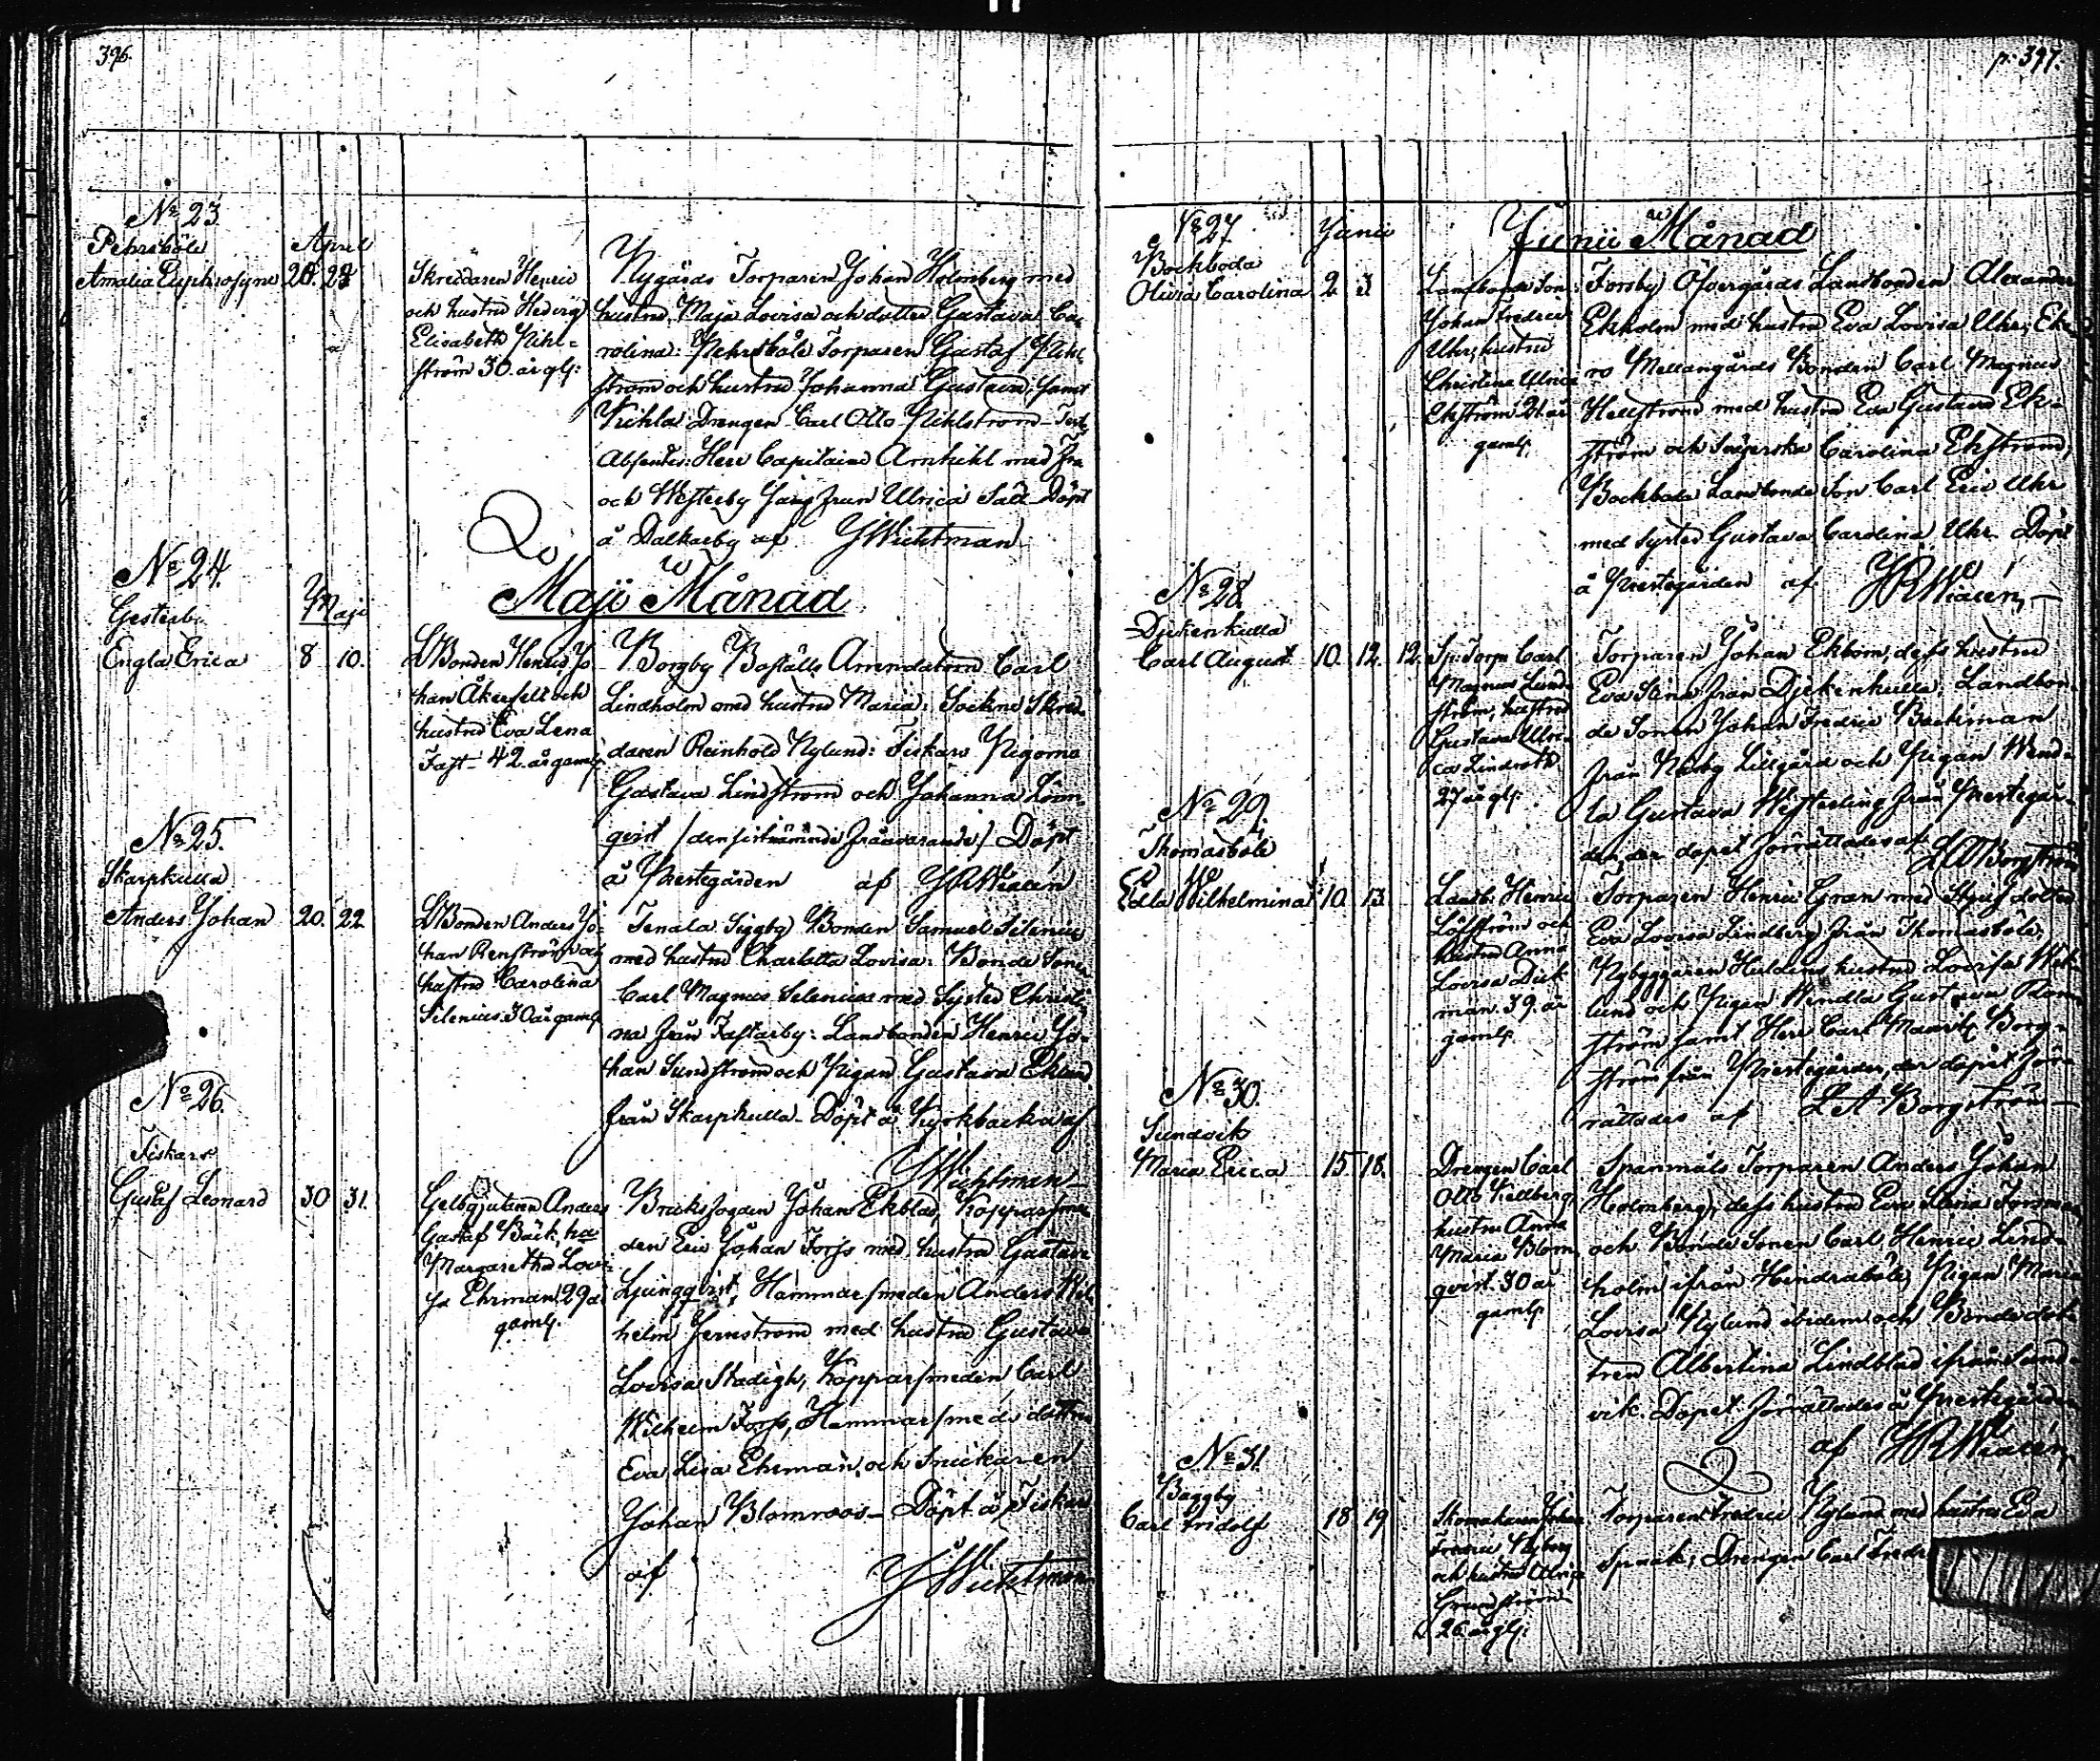 396.
No 23.
Pehrsböle
April
Amalia Euphrosyne 20. 28
Skreddaren Henric
och hustru Hedvig
Elisabeth Pihl=
ström 30. år gl:
Nygårds Torparen Johan Holmberg med
hustru Maja Lovisa och dotter Gustava Ca-
rolina: Pehrsböle Torparen Gustaf Pihl
ström och hustru Johanna Gustava, samt
Drengen Carl Otto Pihlström
Absentes: Herr Capitaine Arnkihl med Fru
och Westerby Jungfrun Ulrica Döpt
å Dalkarby af J Wichtman
No 24.
Gesterby
Maji
Maji Månad
Engla Erica 8 10.
LBonden Henric Jo
han Åkerfelt och
hustru Eva Lena
Fast 42. år gaml:
Borgby Boställs Arrendatorn Carl
Lindholm med hustru Maria: Sockne Skred
daren Reinhold Nylund: Fiskars Pigorna
Gustava Lindström och Johanna Lönn
qvist /den sistnämnde frånvarande/ Döpt
å Prestegården af
No 25.
Skarpkulla
Anders Johan 20. 22
LBonden Anders Jo-
han Renström och
hustru Carolina
Silenius 30 år gaml.
Tenala Siggby Bonden Samuel Silenius
med hustru Charlotta Lovisa: Bonde Sonen
Carl Magnus Selenius med Syster Christi
na från Fastarby: Landbonden Henric Jo-
han Sundström och Pigan Gustava Eklund
från Skarpkulla. Döpt å Kyrkbacka af
J Wichtman
No 26.
Fiskars
Gustaf Leonard 30 31.
Gelbgjutaren Anders
Gustaf Bäck, hu
Margaretha Lovi-
sa Ehrman 29 år
gaml.
Bruksfogden Johan Ekblad, Kopparsme
den Eric Johan Forss med hustru Gustava
Ljungqvist, Hammarsmeden Anders Wil
helm Jernström med hustru Gustava
Lovisa Stadigh, Kopparsmeden Carl
Wilhelm Forss, Hammarsmeds dottren
Eva Lisa Ehrman, och Snickaren
Johan Blomroos. Döpt å Fiskars
af J Wichtman
p. 397.
No 27
Bockboda
Junii
Junii Månad
Olivia Carolina 2. 3.
Landbonde Son
Johan Fredric
Uhr, hustru
Christina Ulrica
Ekström 21 år
gaml.
Forsby Öfvergårds Landbonden Alexander
Ekholm med hustru Eva Lovisa Uhr, Eke
ro Mellangårds Bonden Carl Magnus
Hellström med hustru Eva Gustava Ek-
ström och Carolina Ekström,
Bockboda Landbonde Son Carl Eric Uhr
med Syster Gustava Carolina Uhr. Döpt
å Prestegården af
No 28.
Djekenkulla
Carl August 10. 12. 12.
Sp: Torp. Carl
Magnus Lund-
ström, hustru
Gustava Ulri-
ca Lindroth
27 år gl.
Torparen Johan Ekbom, dess hustru
Eva Stina från Djekenkulla, Landbon-
de Sonen Johan Fredric Backman
från Näsby Lillgård och Pigan Wend-
la Gustava Westerling från Prestegår-
den, der dopet förrättades af
LA Borgström
No 29.
Thomasböle
Edla Wilhelmina 10. 13.
Landb: Henric
Löfström och
hustru Anna
Lovisa Dick
man 39. år
gaml.
Torparen Henric Gran med Styfdotter
Eva Lovisa Lindberg från Thomasböle,
Nybyggaren Huldens hustru Lovisa Wek-
lund och Pigan Wendla Gustava
ström samt Herr Carl Mauritz Borg-
ström från Prestegården, der dopet för-
rättades af LA Borgström
No 30.
Sundvik
Maria Erica 15. 18.
Drengen Carl
Otto Kellberg,
hustru Anna
Maria Blom
qvist 30 år
gaml.
Spanmåls Torparen Anders Johan
Holmberg, dess hustru Eva Forsman
och Bonde Sonen Carl Henric Lind-
holm ifrån Hindraböle, Pigan Maria
Lovisa Nylund ibidem och Bonde dot-
tren Albertina Lindblad ifrån Sund-
vik. Dopet förrättades å Prestegården
af
No 31.
Baggby
Carl Fridolf 18 19
Skomakaren Johan
Fredric Nyberg
och hustru Ulrica
Grundström
26 år gl:
Torparen Fredric Nylund med hustru Eva
Spaak, Drengen Carl Fredr